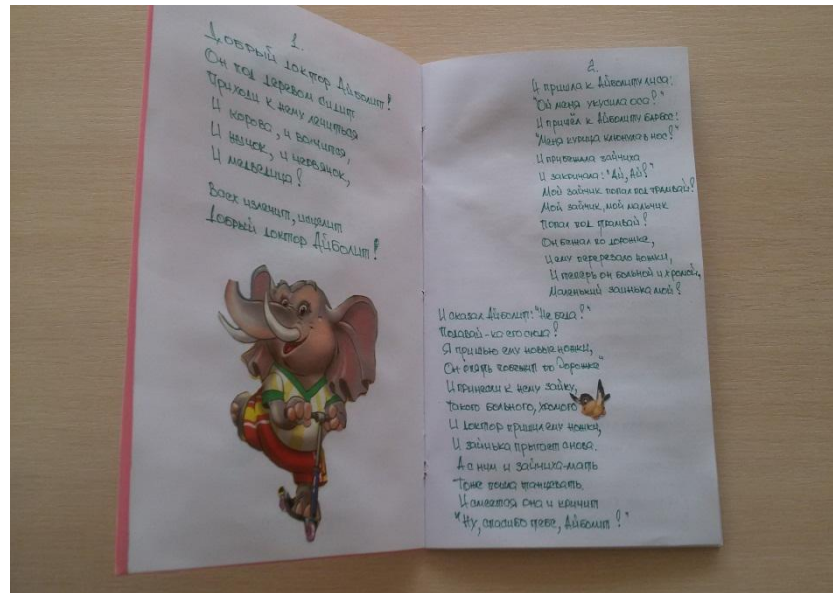 1.
Добрый доктор Айболит!
Он под деревом сидит.
Приходи к нему лечиться
И корова, и волчица,
И жучок, и червячок,
И медведица!
Всех излечит, исцелит
Добрый доктор Айболит!
2.
И пришла к Айболиту лиса:
"Ой меня укусила оса!"
И пришёл к Айболиту барбос:
"Меня курица клюнула в нос!"
И прибежала зайчиха
И закричала: "Ай, Ай!"
Мой зайчик попал под трамвай!
Мой зайчик, мой мальчик
Попал под трамвай!
Он бежал по дорожке,
И ему перерезало ножки,
И теперь он больной и хромой,
Маленький заинька мой!
И сказал Айболит: "Не беда!"
Подавай-ка его сюда!
Я пришью ему новые ножки,
Он опять побежит по дорожке"
И принесли к нему зайку,
Такого больного, хромого
И доктор пришил ему ножки,
И зайнька прыгает снова.
А с ним и зайчиха-мать
Тоже пошла танцевать.
И смеётся она и кричит
"Ну, спасибо тебе, Айболит!"